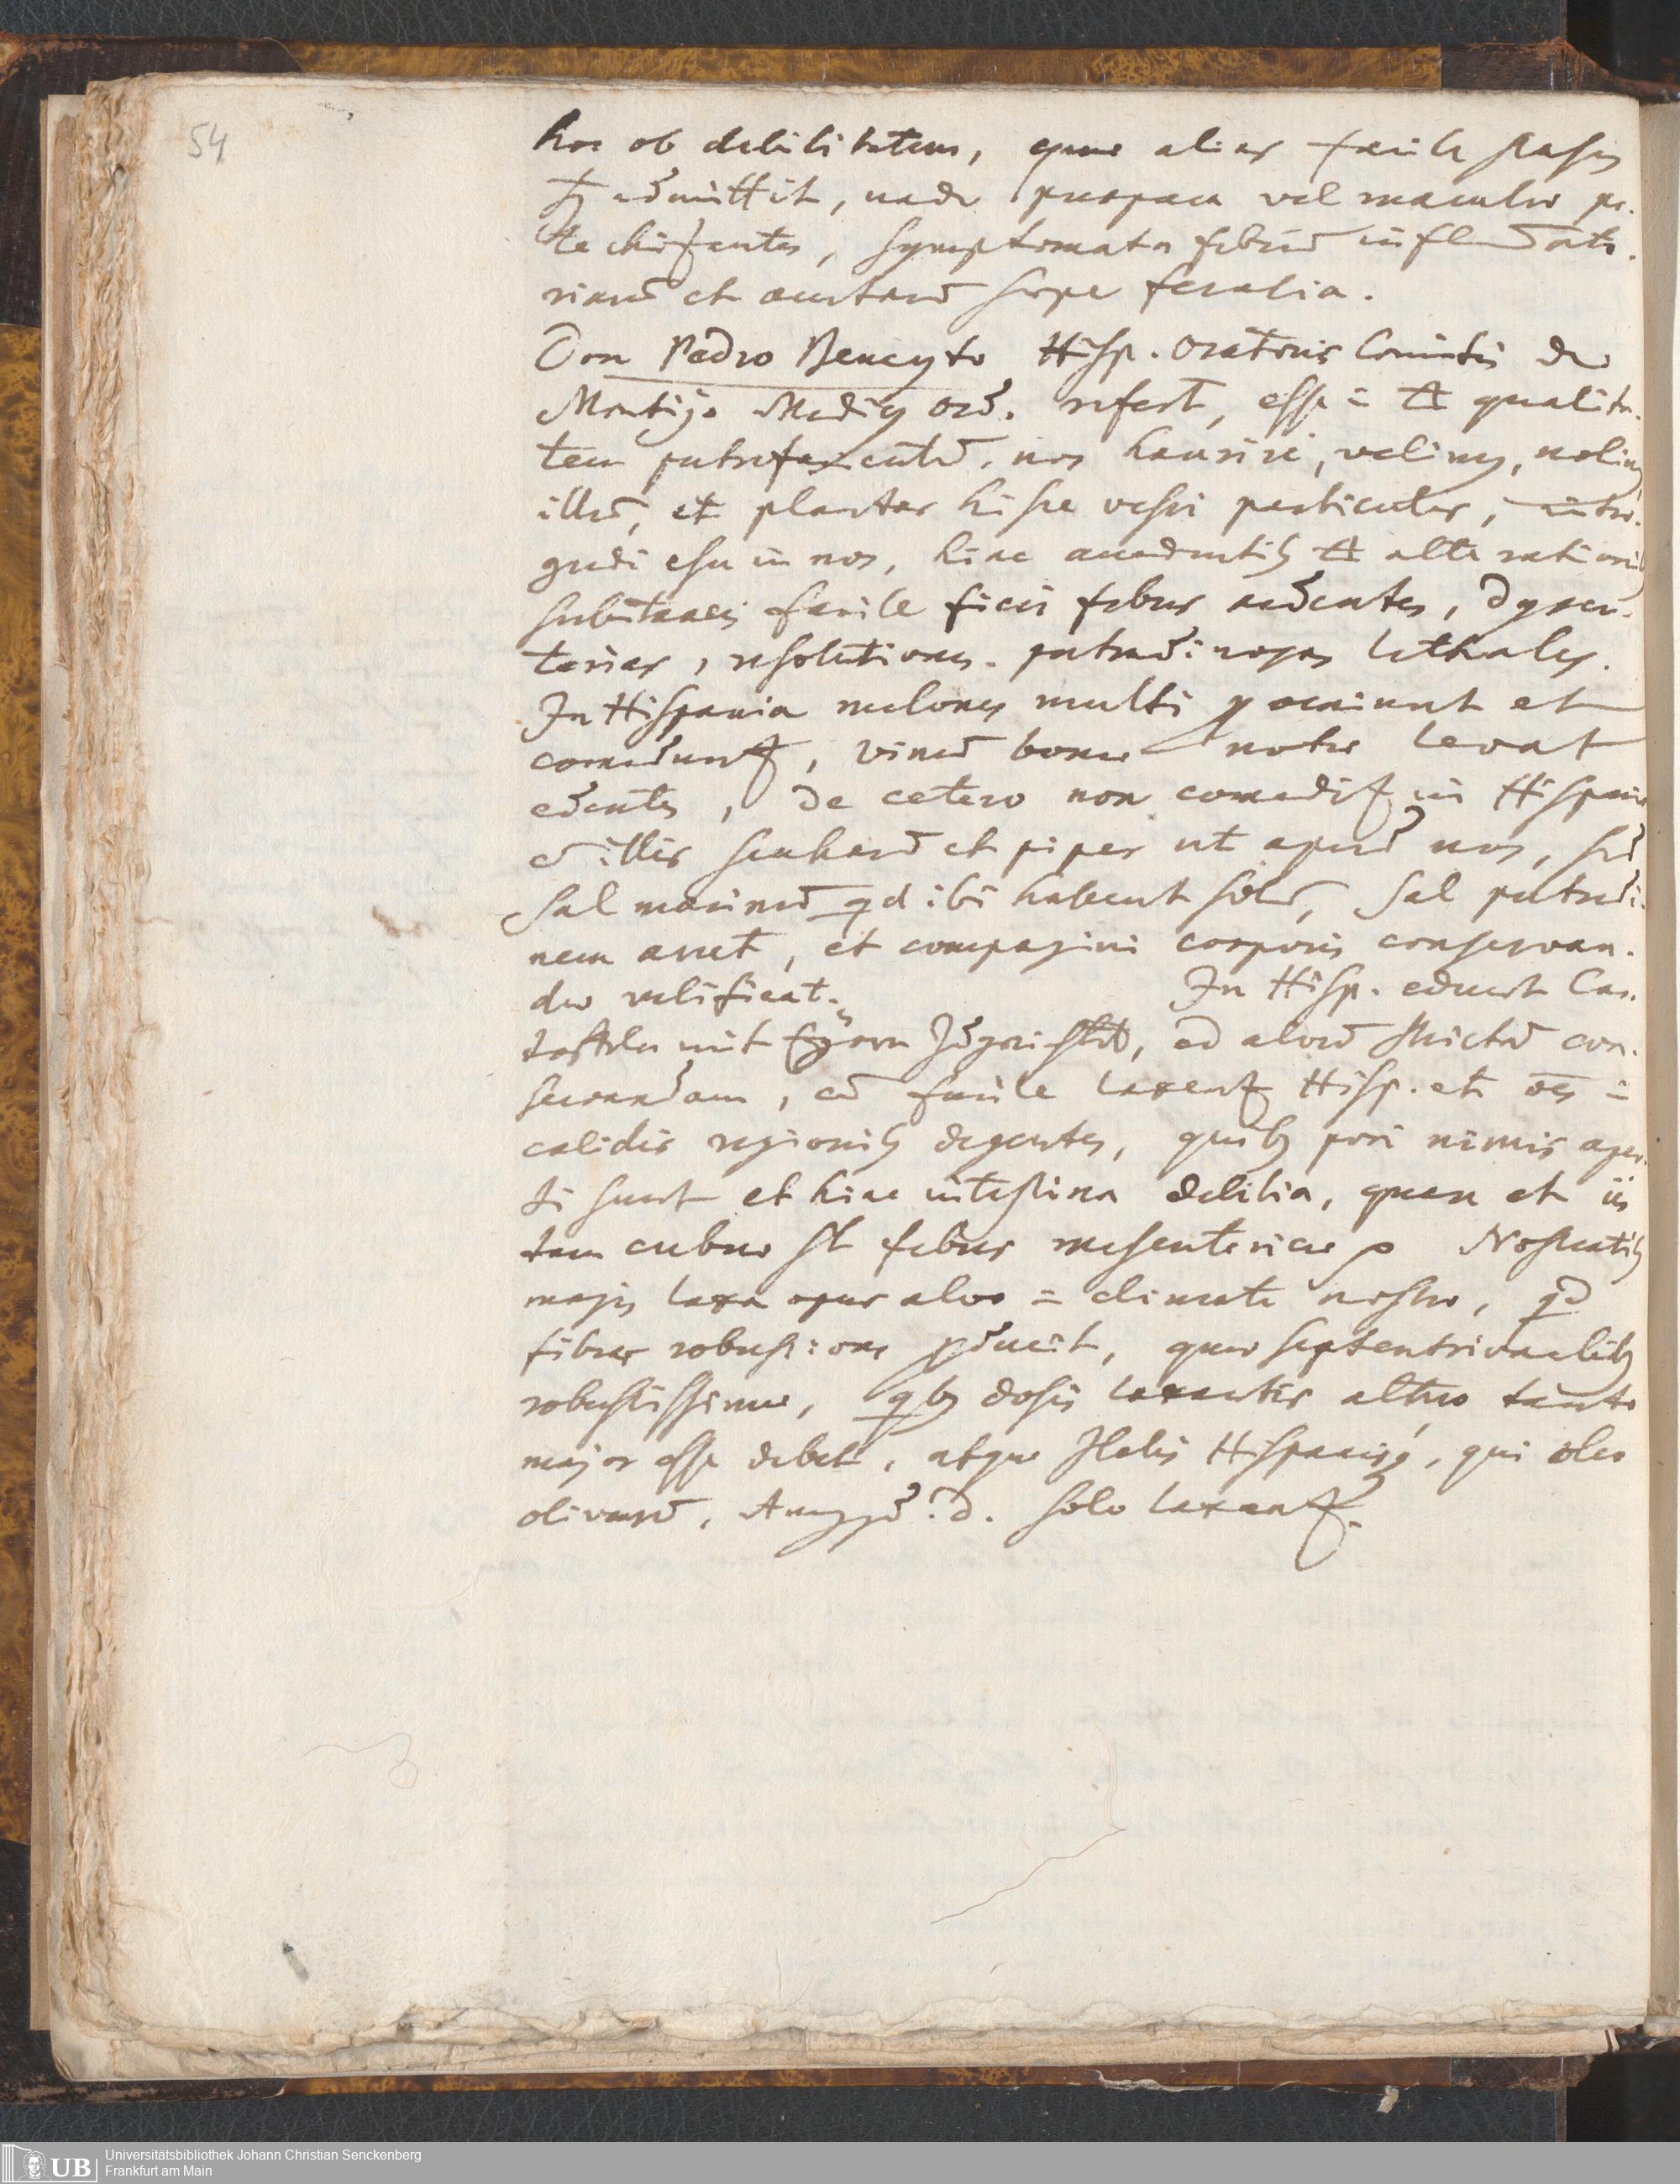 54
hoc ob debilitatem, quae alias facile stases
admittit, unde purpura vel maculae pe.
techizantes, symptomata febriū inflam̄ato.
riarū et acutarū saepe feralia.
Don Pedro Beneyto Hisp. Oratoris Comitis de
Montijo Medicus ord. refert, esse = qualita.
tem putrefacientē. nos haurire, velimus, nolimus
illū, et plantas hisce vesci particulis, intro.
gredi esu in nos, hinc accedentibus alterationibus
subitaneis facile fieri febres ardentes, dysen.
terias, resolutiones putredinosas lethales.
In Hispania melones multi proveniunt et
comedunt, vinum bonae notae levat
edentes, de cetero non comedit in Hispania
cū illis saccharū et piper ut apud nos, sed
Sal marinū qd ibi habent solū, Sal putredi.
nem arcet, et compagini corporis conservan.
dae velificat. In Hisp. edunt Car.
toffeln mit, ad alvum strictā con.
servandam, cū facile laxent Hisp. et oēs =
calidis regionibus degentes, quibus pori nimis aper.
ti sunt et hinc intestina debilia, quare et iis
tam crebrae st febres mesentericae Nostratibus
magis laxa opus alvo = climate nostro, qd
fibras robustiores producit, quae septentrionalibus
robustissimae, qbus dosis laxantis altero tanto
major esse debet, atque Italis Hispanisque, qui oleo
olivarū, Amygd. d. solo laxant.
Universitätsbibliothek Johann Christian Senckenberg
Frankfurt am Main
UB